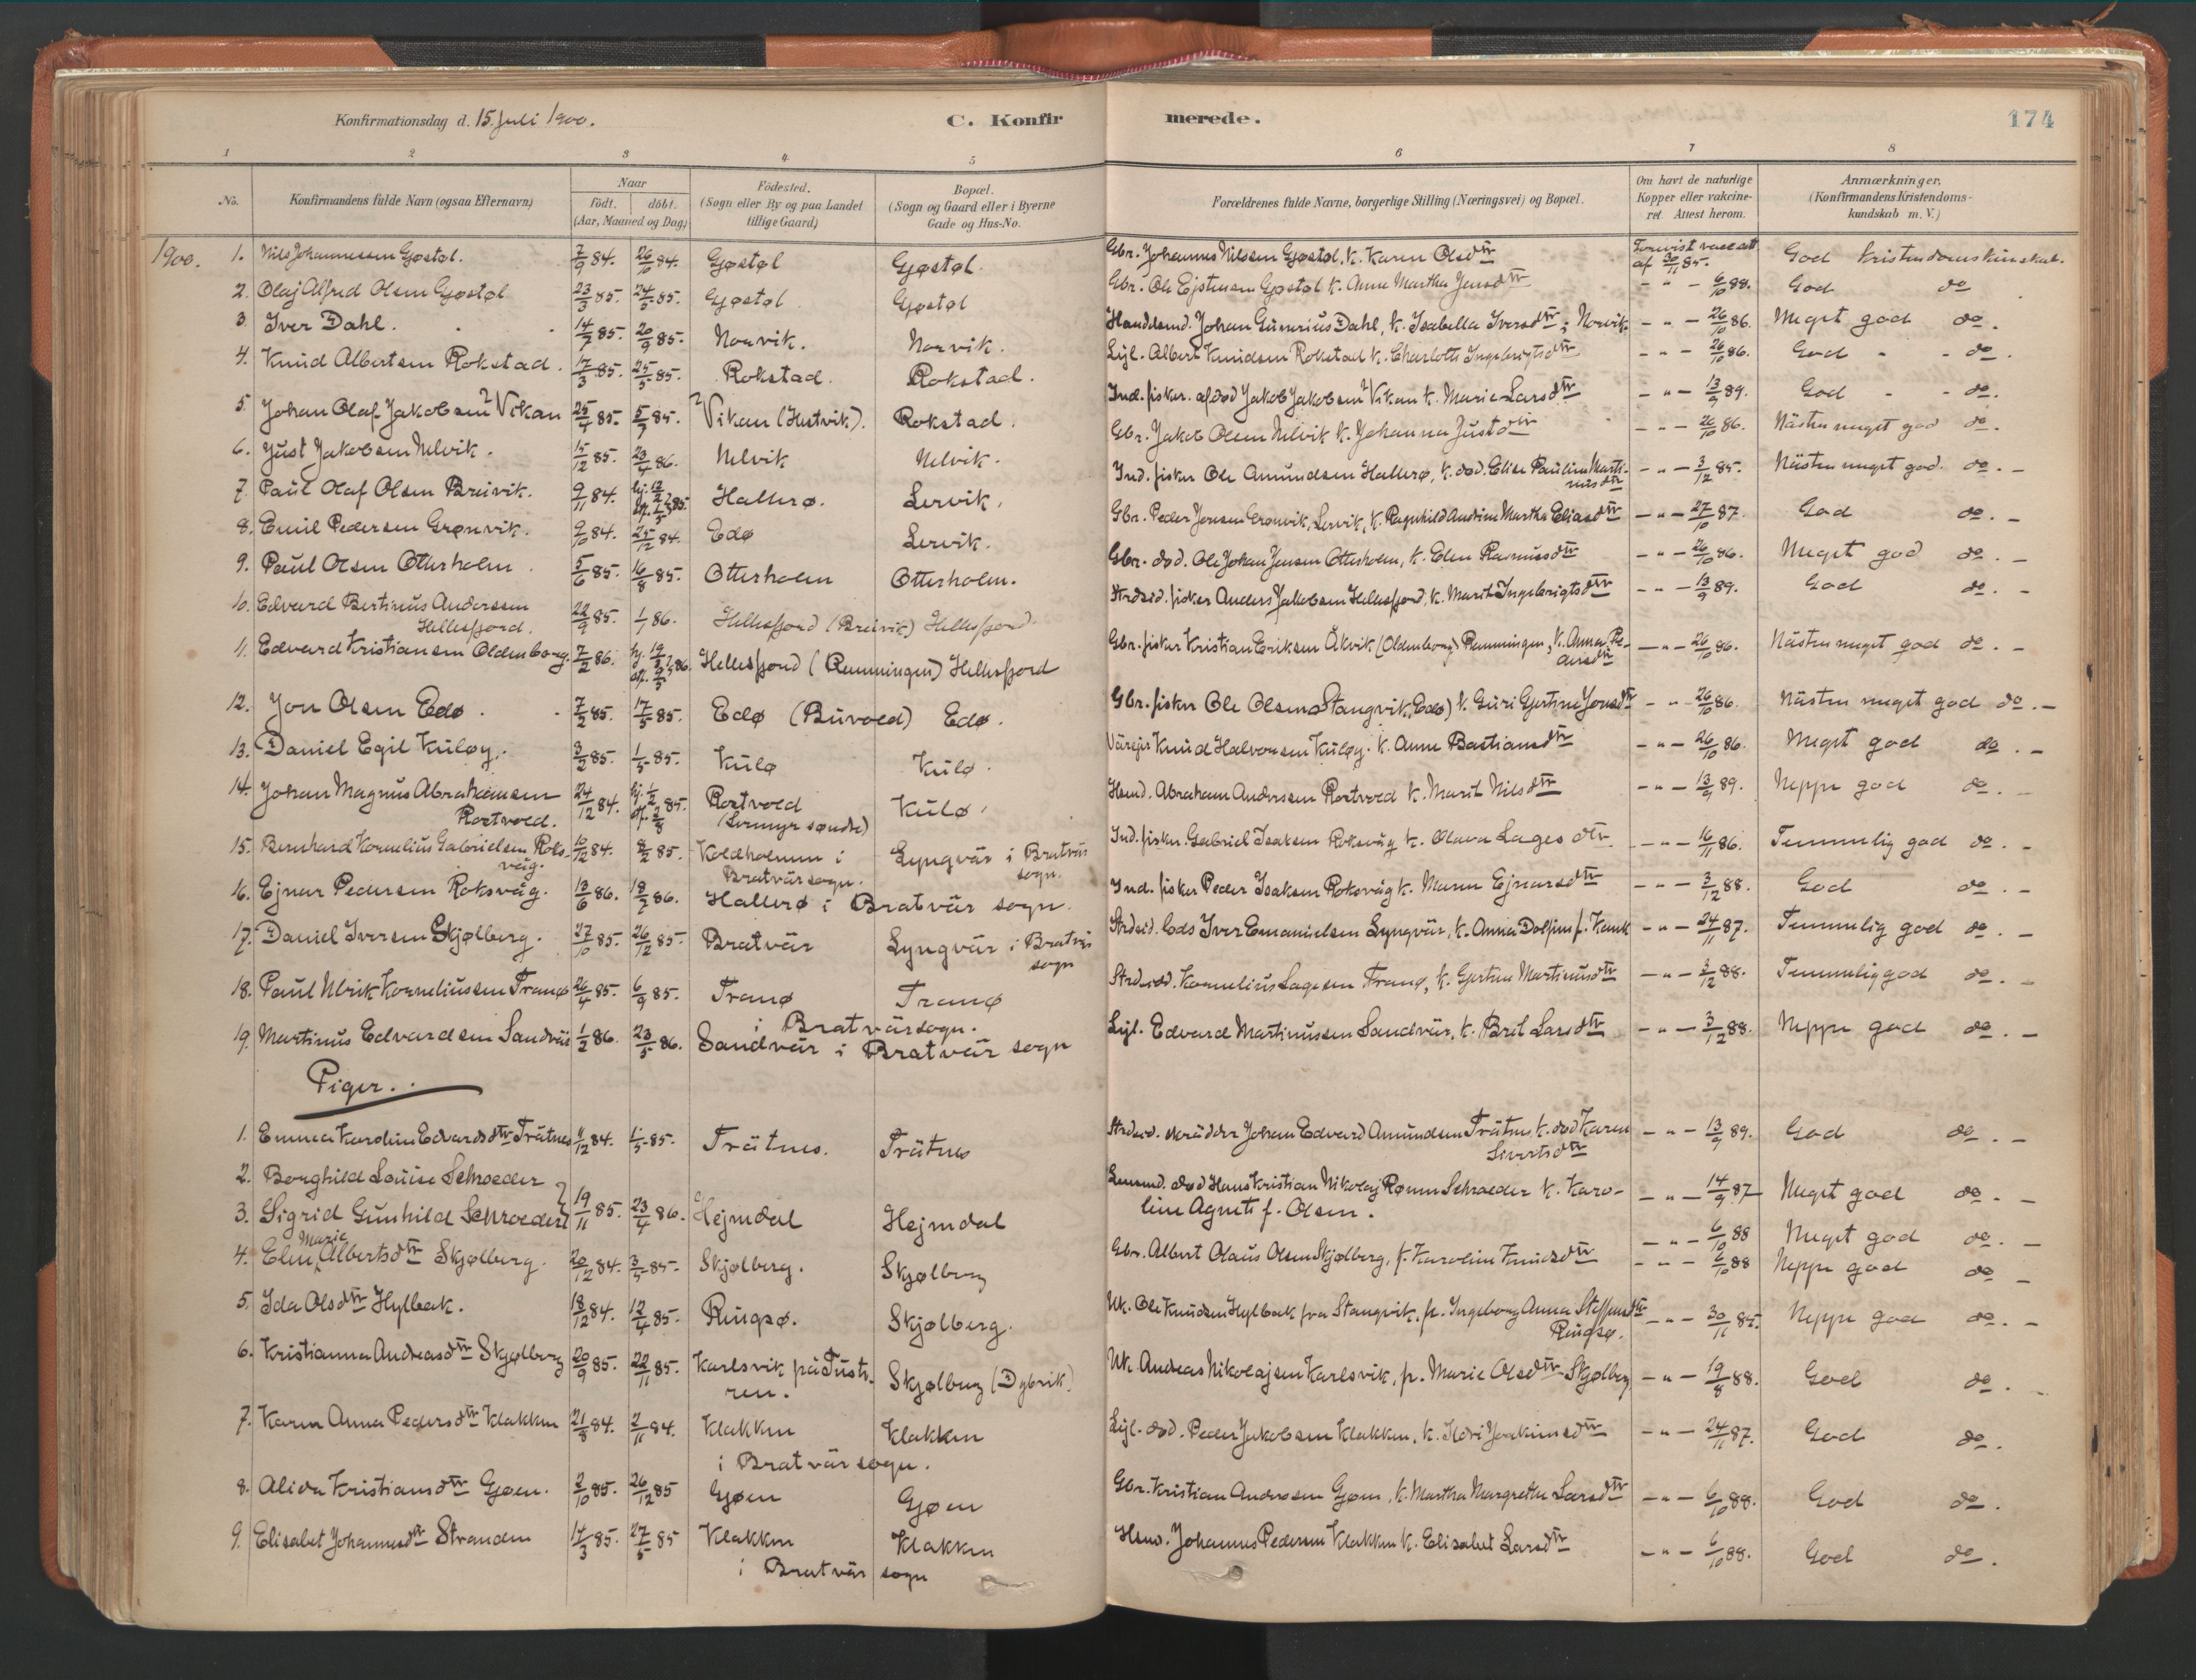 Konfirmationsdag d. 15. Juli 1900. C. Konfirmerede. 174
1 2 3 4 5 6 7 8
No. Konfirmandens fulde Navn (ogsaa Efternavn) Naar Födt. döbt. (Aar, Maaned og Dag) Födested. (Sogn eller By og paa Landet tillige Gaard) Bopæl. (Sogn og Gaard eller i Byerne Gade og Hus-No. Forældrenes fulde Navne, borgerlige Stilling (Næringsvei) og Bopæl. Om havt de naturlige Kopper eller vakcineret. Attest herom. Anmærkninger, (Konfirmandens Kristendomskundskab m. V.)
1900. 1. Nils Johannessen Gjøstøl. 7/9 84. 26/10 84. Gjøstøl Gjøstøl. Gbr. Johannes Nilssen Gjøstøl, k. Karen Olsdtr Forevist vacc att af 30/11 85. God kristendomskundskab.
2. Olaf Alfred Olsen Gjøstøl 23/3 85. 24/5 85. Gjøstøl Gjøstøl Gbr. Ole Ejstensen Gjøstøl k. Anne Martha Jensdtr - " - 6/10 88. God do
3. Iver Dahl. 14/7 85. 20/9 85. Norvik. Norvik. Handelsmd. Johan Gunerius Dahl, k. Isabella Iversdtr; Norvik - " - 26/10 86. Meget god do.
4. Knud Albertsen Rokstad. 17/3 85. 25/5 85. Rokstad. Rokstad. Lejl. Albert Knudsen Rokstad k. Charlotte Ingebrigtsdtr - " - 26/10 86. God - - do.
5. Johan Olaf Jakobsen Vikan 25/4 85. 5/7 85. Vikan (Hustvik). Rokstad. Ind. fisker. afdød Jakob Jakobsen Vikan k. Marie Larsdtr - " - 13/9 89. God - - do.
6. Just Jakobsen Nelvik. 15/12 85. 23/4 86. Nelvik Nelvik. Gbr. Jakob Olsen Nelvik k. Johanna Justdtr - " - 26/10 86. Nästen meget god do.
7. Paul Olaf Olsen Breivik. 9/11 84. hj. 12/2 85. Hallerø. Lervik. Ind. fisker Ole Amundsen Hallerø, k. død. Elise Pauline Martinusdtr - " - 3/12 85. Nästen meget god. do. -
8. Emil Pedersen Grønvik. 9/10 84. 25/12 84. Edø Lervik. Gbr. Peder Jensen Grønvik, Lervik, k. Ragnhild Andrine Martha Eliasdtr - " - 27/10 87. God do. -
9. Paul Olsen Otterholm. 5/6 85. 16/8 85. Otterholm Otterholm. Gbr. død. Ole Johan Jensen Otterholm, k. Elen Rasmusdtr - " - 26/10 86. Meget god do. -
10. Edvard Bertinus Anderssen Hellesfjord. 22/9 85. 1/1 86. Hellesfjord (Breivik) Hellesfjord Strdsid. fisker Anders Jakobsen Hellesfjord, k. Marit Ingebrigtsdtr - " - 13/9 89. God do. -
11. Edvard Kristiansen Oldenborg. 7/2 86. Hellesfjord (Remmingen) Hellesfjord Gbr. fisker Kristian Eriksen Åkvik (Oldenborg) Remmingen, k. Anna Pedersdtr - " - 26/10 86. Nästen meget god do. -
12. Jon Olsen Edø. 7/2 85. 17/5 85. Edø (Buvold) Edø. Gbr. fisker Ole Olsen Stangvik, (Edø) k. Guri Gjertine Jonsdtr - " - 26/10 86. Nästen meget god do. -
13. Daniel Egil Kuløy. 3/2 85. 1/5 85. Kulø Kulø. Värejer Knud Halvorsen Kuløy. k. Anne Bastiansdtr - " - 26/10 86. Meget god do. -
14. Johan Magnus Abrahamsen Rostvold. 24/12 84. hj. 1/2 85. Rostvold Kulø. Hsmd. Abraham Anderssen Rostvold k. Marit Nilsdtr - " - 13/9 89. Neppe god do. -
15. Bernhard Kornelius Gabrielsen Roksvåg. 10/12 84. 8/2 85. Koldholmen i Bratvär sogn. Lyngvär i Bratvär sogn. Ind. fisker. Gabriel Isaksen Roksvåg k. Olava Lagesdtr. - " - 16/11 86. Temmelig god do. -
16. Ejnar Pedersen Roksvåg. 13/6 86. 18/7 86. Hallerø i Bratvär sogn. Ind. fisker Peder Isaksen Roksvåg k. Maren Ejnarsdtr - " - 3/12 88. God do. -
17. Daniel Iversen Skjølberg. 27/10 85. 26/12 85. Bratvär Lyngvär i Bratvär sogn Strdsid. Lods Iver Emanielsen Lyngvär, k. Anna Dolfine f. - " - 24/11 87. Temmelig god do. -
18. Paul Ulrik Korneliussen Tranø 26/4 85. 6/9 85. Tranø Tranø i Bratvärsogn. Strdsid. Kornelius Lagesen Tranø, k. Gjertine Martinusdtr - " - 3/12 88. Temmelig god do. -
19. Martinus Edvardsen Sandvär 1/2 86. 23/5 86. Sandvär i Bratvär sogn Lejl. Edvard Martinussen Sandvär, k. Berit Larsdtr - " - 3/12 88. Neppe god do. -
Piger.
1. Emma Karoline Edvardsdtr Trätnes 11/12 84. 1/5 85. Trätnes. Trätnes Strdsid. skrädder Johan Edvard Amundsen Trätnes k. død Karen Sivertsdtr - " - 13/9 89. God do. -
2. Borghild Louise Schroeder
3. Sigrid Gunhild Schroeder 19/11 85. 23/4 86. Hejmdal Hejmdal Lensmd. død Hans Kristian Nikolaj Rønne Schroeder k. Karoline Agnete f. Olsen. - " - 14/9 87 Meget god do. -
- " - 6/10 88 Meget god do. -
4. Elen Marie Albertsdtr Skjølberg. 20/12 84. 3/5 85. Skjølberg. Skjølberg Gbr. Albert Olaus Olsen Skjølberg, k. Karoline Knudsdtr - " - 6/10 88 Neppe god do -
5. Ida Olsdtr Hylbak. 18/12 84. 12/4 85. Ringsø. Skjølberg. Uk. Ole Knudsen Hylbak fra Stangvik, p. Ingeborg Anna Steffensdtr Ringsø. - " - 30/11 85. Neppe god do. -
6. Kristianna Andreasdtr Skjølberg 20/9 85. 22/11 85. Karlsvik på Tustren. Skjølberg (Dybvik) Uk. Andreas Nikolajsen Karlsvik, p. Marie Olsdtr Skjølberg - " - 19/8 88. God do. -
7. Karen Anna Pedersdtr Klakken 21/8 84. 2/11 84. Klakken Klakken i Bratvär sogn. Lejl. død. Peder Jakobsen Klakken, k. Ildri Joakimsdtr - " - 24/11 87. God do.
8. Alida Kristiansdtr Gjøen. 2/10 85. 26/12 85 Gjøen Gjøen Gbr. Kristian Andersen Gjøen, k. Martha Margrethe Larsdtr - " - 6/10 88. God do.
9. Elisabet Johannesdtr Stranden 14/3 85. 27/5 85 Klakken Klakken i Bratvär sogn Hsmd. Johannes Pedersen Klakken k. Elisabet Larsdtr - " - 6/10 88. God do.